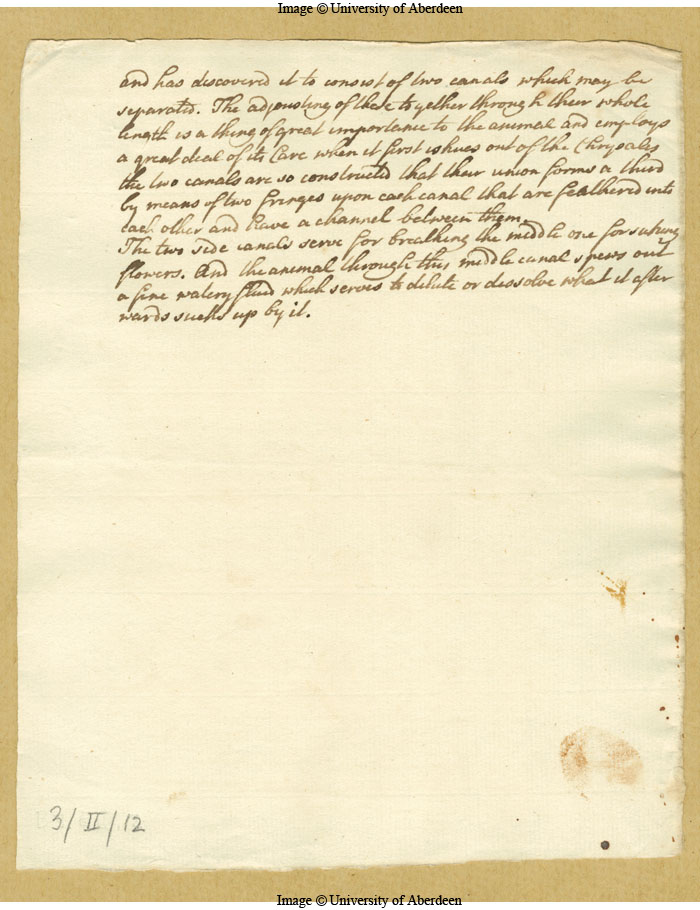 Image © University of Aberdeen
and has discovered it to consist of two canals which may be
separated. The adjousting of these together through their whole
length is a thing of great importance to the animal and employs
a great deal of its Care when it first ishues out of the Chrysalis
the two canals are so constructed that their union forms a third
by means of two fringes upon each canal that are feathered into
each other and leave a channel between them.
The two side canals serve for breathing the middle one for suking
flowers. And the animal through this middle canal spews out
a fine watery fluid which serves to dilute or dissolve what it after
wards sucks up by it.
3/II/12
Image © University of Aberdeen